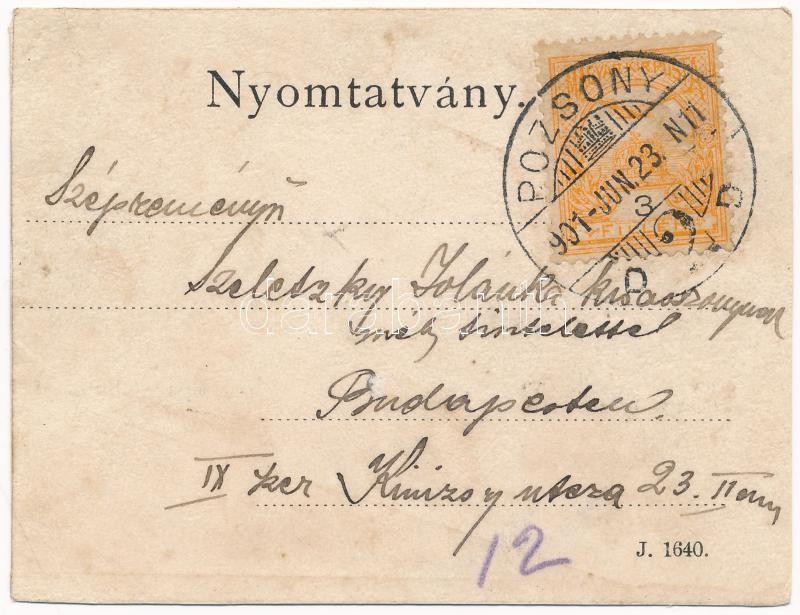 Nyomtatvány.
POZSONY
901-JUN.23. N11
D
D
3
FILLÉR
Szépreményű
Szeletzky Jolánka kisasszonynak
mély tisztelettel
Budapesten.
IX ker Kinizsy utcza 23. II em
12
J. 1640.
darabanth